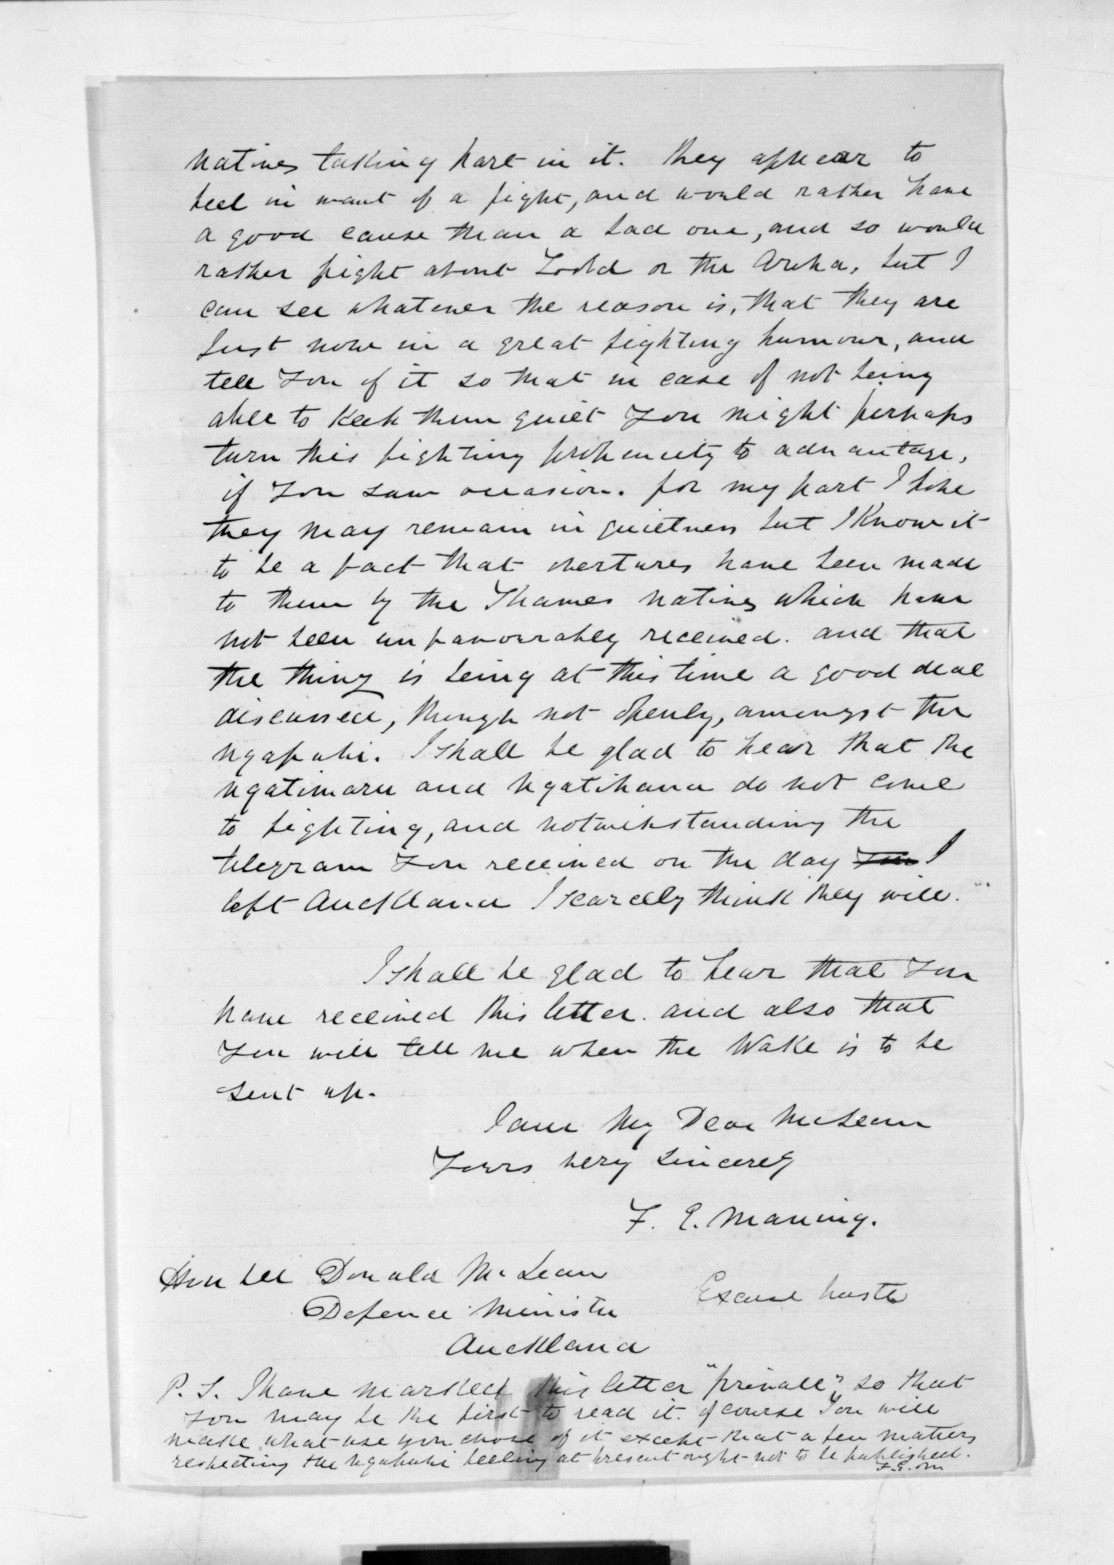 natives taking part in it. they appear to
feel in want of a fight, and would rather have
a good cause than a bad one, and so would
rather fight about Todd or the Aruha, but I
can see whatever the reason is, that they are
just now in a great fighting humour, and
tell you of it so that in case of not being
able to keep them quiet you might perhaps
turn this fighting propencity to advantage,
if you saw occasion. for my part I hope
they may remain in quietness but I know it
to be a fact that overtures have been made
to them by the Thames natives which have
not been unfavourably received. and that
the thing is being at this time a good deal
discussed, though not openly, amongst the
ngapuhi. I shall be glad to hear that the
ngatimaru and ngatihaua do not come
to fighting, and notwithstanding the
telegram you received on the day you I
left Auckland I scarcely think they will."
I shall be glad to hear that you
have received this letter. and also that
you will tell me when the Wake is to be
sent up.
I am My Dear McLean
Yours very sincerely
F. E. Maning.
Honble Donald McLean
Defence Minister
Excuse haste
Auckland
P. S. I have marked this letter "private" so that
you may be the first to read it. of course you will
make what use you chose of it except that a few matters
respecting the ngapuhi feeling at present ought not to be published.
F. E. M